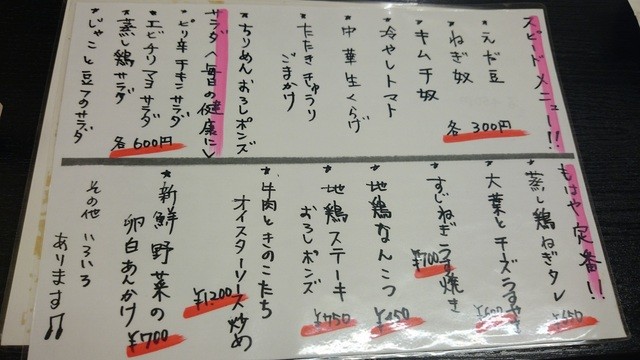 スピードメニュー!!
* えだ豆
* ねぎ奴
* キムチ奴
各 300円
* 冷やしトマト
* 中華生くらげ
* たたききゅうり
ごまかけ
* ちりめんおろしポンズ
サラダで毎日の健康に
* ピリ辛チキンサラダ
* エビチリマヨサラダ
* 蒸し鶏サラダ
各 600円
* じゃこと豆フのサラダ
もはや定番!!
* 蒸し鶏ねぎタレ
¥650
* 大葉とチーズうすやき
¥600
* すじねぎうす焼き
¥700
* 地鶏なんこつ
¥450
* 地鶏ステーキ
おろしポンズ
¥750
* 牛肉ときのこたち
オイスターソース炒め
¥1200
* 新鮮野菜の
卵白あんかけ
¥700
その他 いろいろ
あります♫